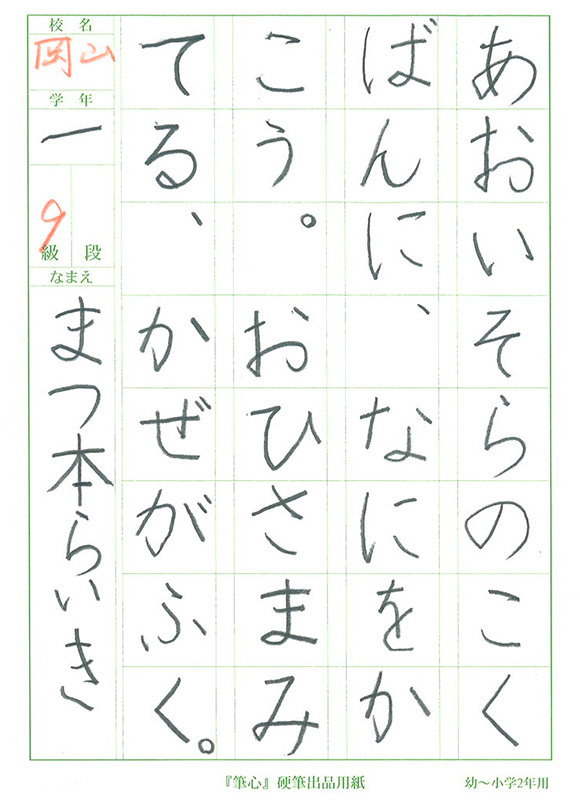 あおいそらのこく
ばんに、なにをか
こう。おひさまみ
てる、かぜがふく。
校名
岡山
学年
一
段
級
9
なまえ
まつ本らいき
『筆心』硬筆出品用紙
幼～小学2年用